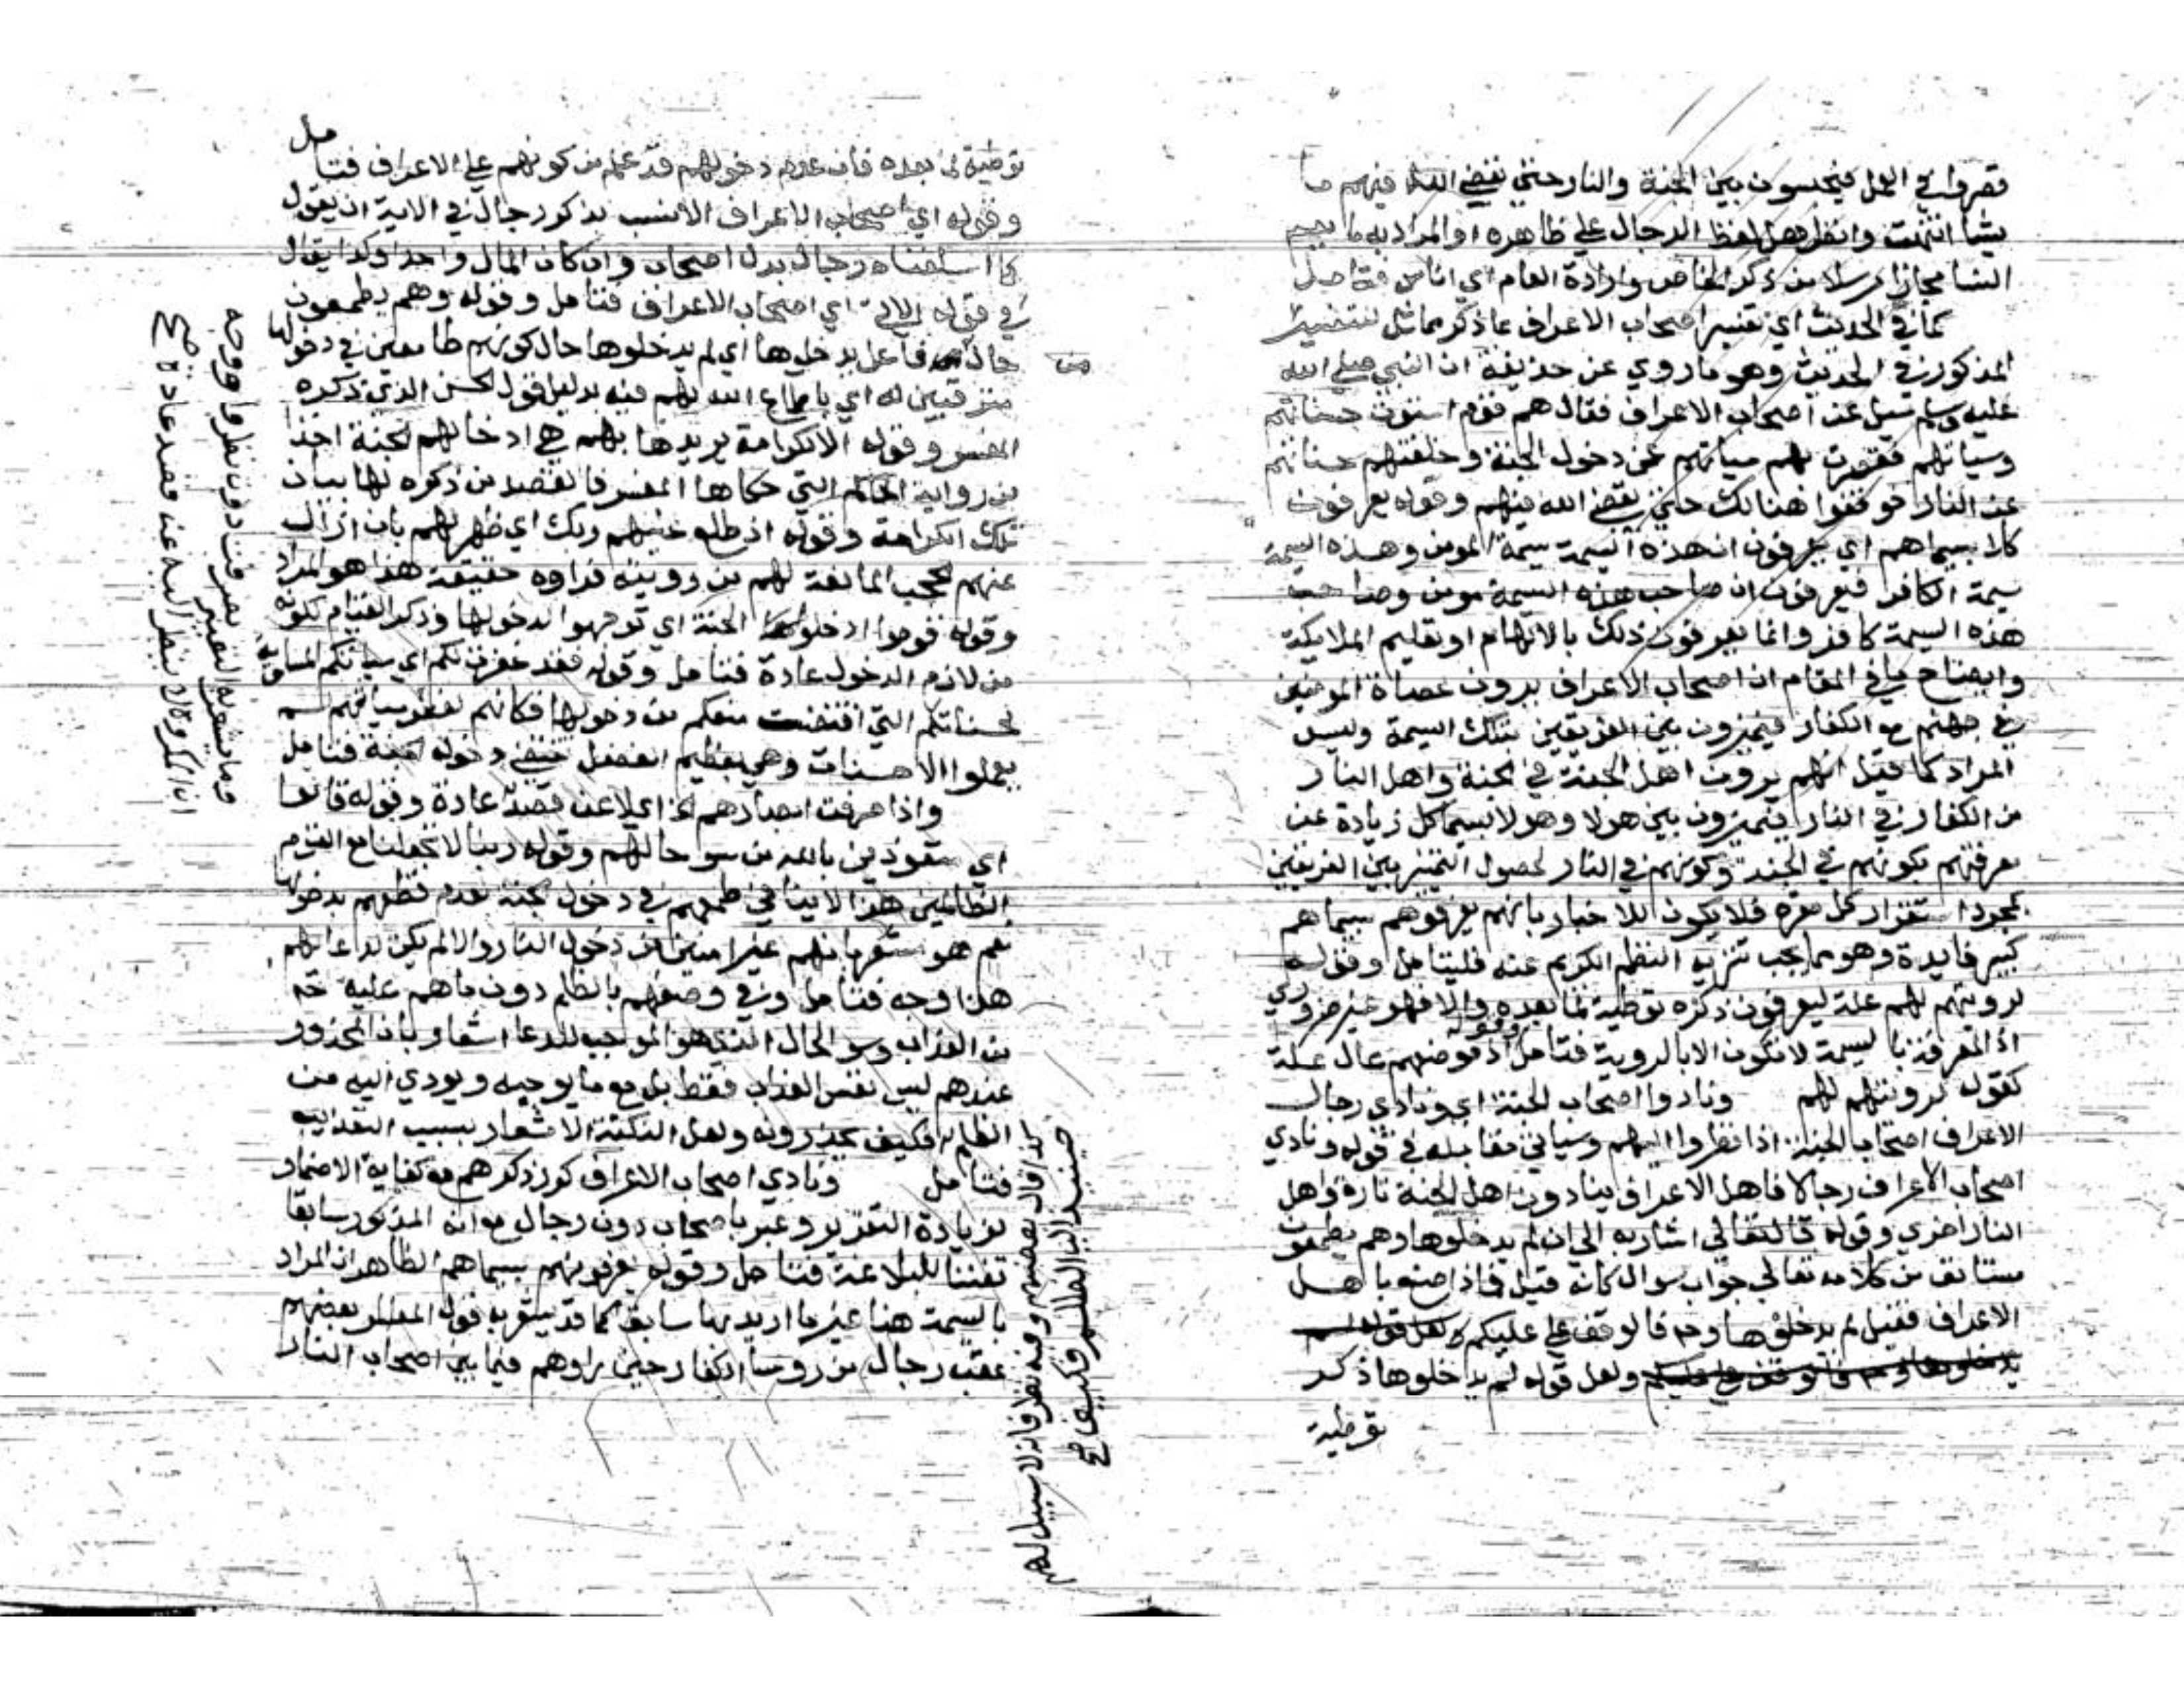 قصروا في العمل فيحبسون بين الجنة والنار حتى يقضي الله فيهم ما
يشا انتهت وانظر هل لفظ الرجال على ظاهره او المراد به ما يعم
النسا مجازا مرسلا من ذكر الخاص وارادة العام اي اناس فتامل
كما في الحديث اي تفسير اصحاب الاعراف بما ذكر مماثل لتفسير
المذكور في الحديث وهو ما روي عن حذيفة ان النبي صلى الله
عليه وسلم سيل عن اصحاب الاعراف فقال هم قوم استوت حسناتهم
وسياتهم فقصرت بهم سياتهم عن دخول الجنة وخلفتهم حسناتهم
عن النار فوقفوا هنالك حتى يقضي الله فيهم وقوله يعرفون
كلا بسيماهم اي يعرفون ان هذه السيمة سيمة المومن وهذه السيمة
سيمة الكافر فيعرفون ان صاحب هذه السيمة مومن وصاحب
هذه السيمة كافر وانما يعرفون ذلك بالالهام او تعليم الملايكة
وايضاح ما في المقام ان اصحاب الاعراف يرون عصاة المومنين
في جهنم مع الكفار فيميزون بين الفريقين بتلك السيمة وليس
المراد كما قيل انهم يرون اهل الجنة في الجنة واهل النار
من الكفار في النار فيميزون بين هولا وهولا بسيما كل زيادة عن
معرفتهم بكونهم في الجنة وكونهم في النار لحصول التمييز بين الفريقين
بمجرد استقرار كل مقره فلا يكون للاخبار بانهم يعرفوهم بسيماهم
كبير فايدة وهو مما يجب تنزيه النظم الكريم عنه فليتامل وقوله
لرويتهم لهم علة ليعرفون ذكره توطية لما بعده والا فهو غير ضروري
اذ المعرفة بالسيمة لا تكون الا بالروية فتامل وقوله اذ موضعهم عال علة
كقول لرويتهم لهم ونادوا اصحاب الجنة اي ونادى رجال
الاعراف اصحاب الجنة اذا نظروا اليهم وسياتي مقابله في قوله ونادى
اصحاب الاعراف رجالا فاهل الاعراف ينادون اهل الجنة تارة واهل
النار اخرى وقوله قال تعالى اشار به الى ان لم يدخلوها وهم يطمعون
مستانف من كلامه تعالى جواب سوال كانه قيل فماذا صنع باهل
الاعراف فقيل لم يدخلوها وهم فالوقف على عليكم ولعل قوله لم
ولعل قوله لم يدخلوها ذكر
توطية
توطية لما بعده فان عدم دخولهم قد علم من كونهم على الاعراف فتامل
وقوله اي اصحاب الاعراف الانسب بذكور رجال في الاية ان يقول
كما اسلفناه رجال بدل اصحاب وان كان المال واحدا وكذا يقال
في قوله الاتي اي اصحاب الاعراف فتامل وقوله وهم يطمعون
حال من فاعل يدخلوها اي لم يدخلوها حال كونهم طامعين في دخولها
مترقبين له اي باطماع الله لهم فيه بدليل قول الحسن الذي ذكره
المفسر وقوله الا لكرامة يريدها بهم هي ادخالهم الجنة اخذا
من رواية الحاكم التي حكاها المفسر فالقصد من ذكره لها بيان
تلك الكرامة وقوله اذ طلع عليهم ربك اي ظهر لهم بان ازال
عنهم الحجب المانعة لهم من رويته فراوه حقيقة هذا هو المراد
وقوله قوموا ادخلوا الجنة اي توجهوا لدخولها وذكر القيام لكونه
من لازم الدخول عادة فتامل وقوله فقد غفرت لكم اي سياتكم المساوية
لحسناتكم التي اقتضت منعكم من دخولها فكانهم بغفر سياتهم لم
يعملوا الا حسنات وهي بعظيم الفضل دخول الجنة فتامل
واذا صرفت ابصارهم اي لا عن قصد عادة وقوله قالوا
اي متعوذين بالله من سو حالهم وقوله ربنا لا تجعلنا مع القوم
الظالمين هذا لا ينافي طمعهم في دخول الجنة بعدم قطعهم بدخولها
نعم هو مشعر بانهم غير امنين من دخول النار والا لم يكن لدعايهم
هذا وجه فتامل وفي وصفهم بالظلم دون ما هم عليه
من العذاب وسو الحال الذي هو الموجب للدعا اشعار بان المحذور
عندهم ليس نفس العذاب فقط بل مع ما يوجبه ويودي اليه من
الظلم فكيف يحذرونه ولعل النكتة الاشعار بسبب التعذيب
فتامل ونادى اصحاب الاعراف كرر ذكرهم مع كفاية الاضمار
لزيادة التقرير وعبر باصحاب دون رجال مع انه المذكور سابقا
تفننا للبلاغة فتامل وقوله يعرفونهم بسيماهم الظاهر ان المراد
بالسيمة هنا غير ما اريد بها سابقا كما قد يشعر به قول المفسر بعضهم
عقب رجال من روسا الكفار حين راوهم فيما بين اصحاب النار
وما يشعر به التعبير بصرفت دون نظروا ووجه
ان المكروه لا ينظر اليه عن قصد عادة صح
كذا قال بعضهم وفيه نظر فانه لا سبيل لهم
حينيذ الى الظلم فكيف صح